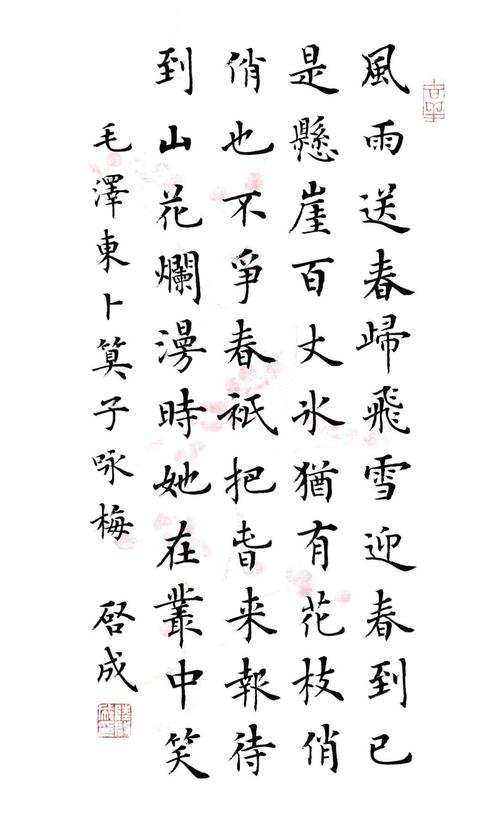 吉羊
風雨送春歸飛雪迎春到已
是懸崖百丈冰猶有花枝俏
俏也不爭春衹把旾来報待
到山花爛漫時她在叢中笑
毛澤東卜算子咏梅 啓成